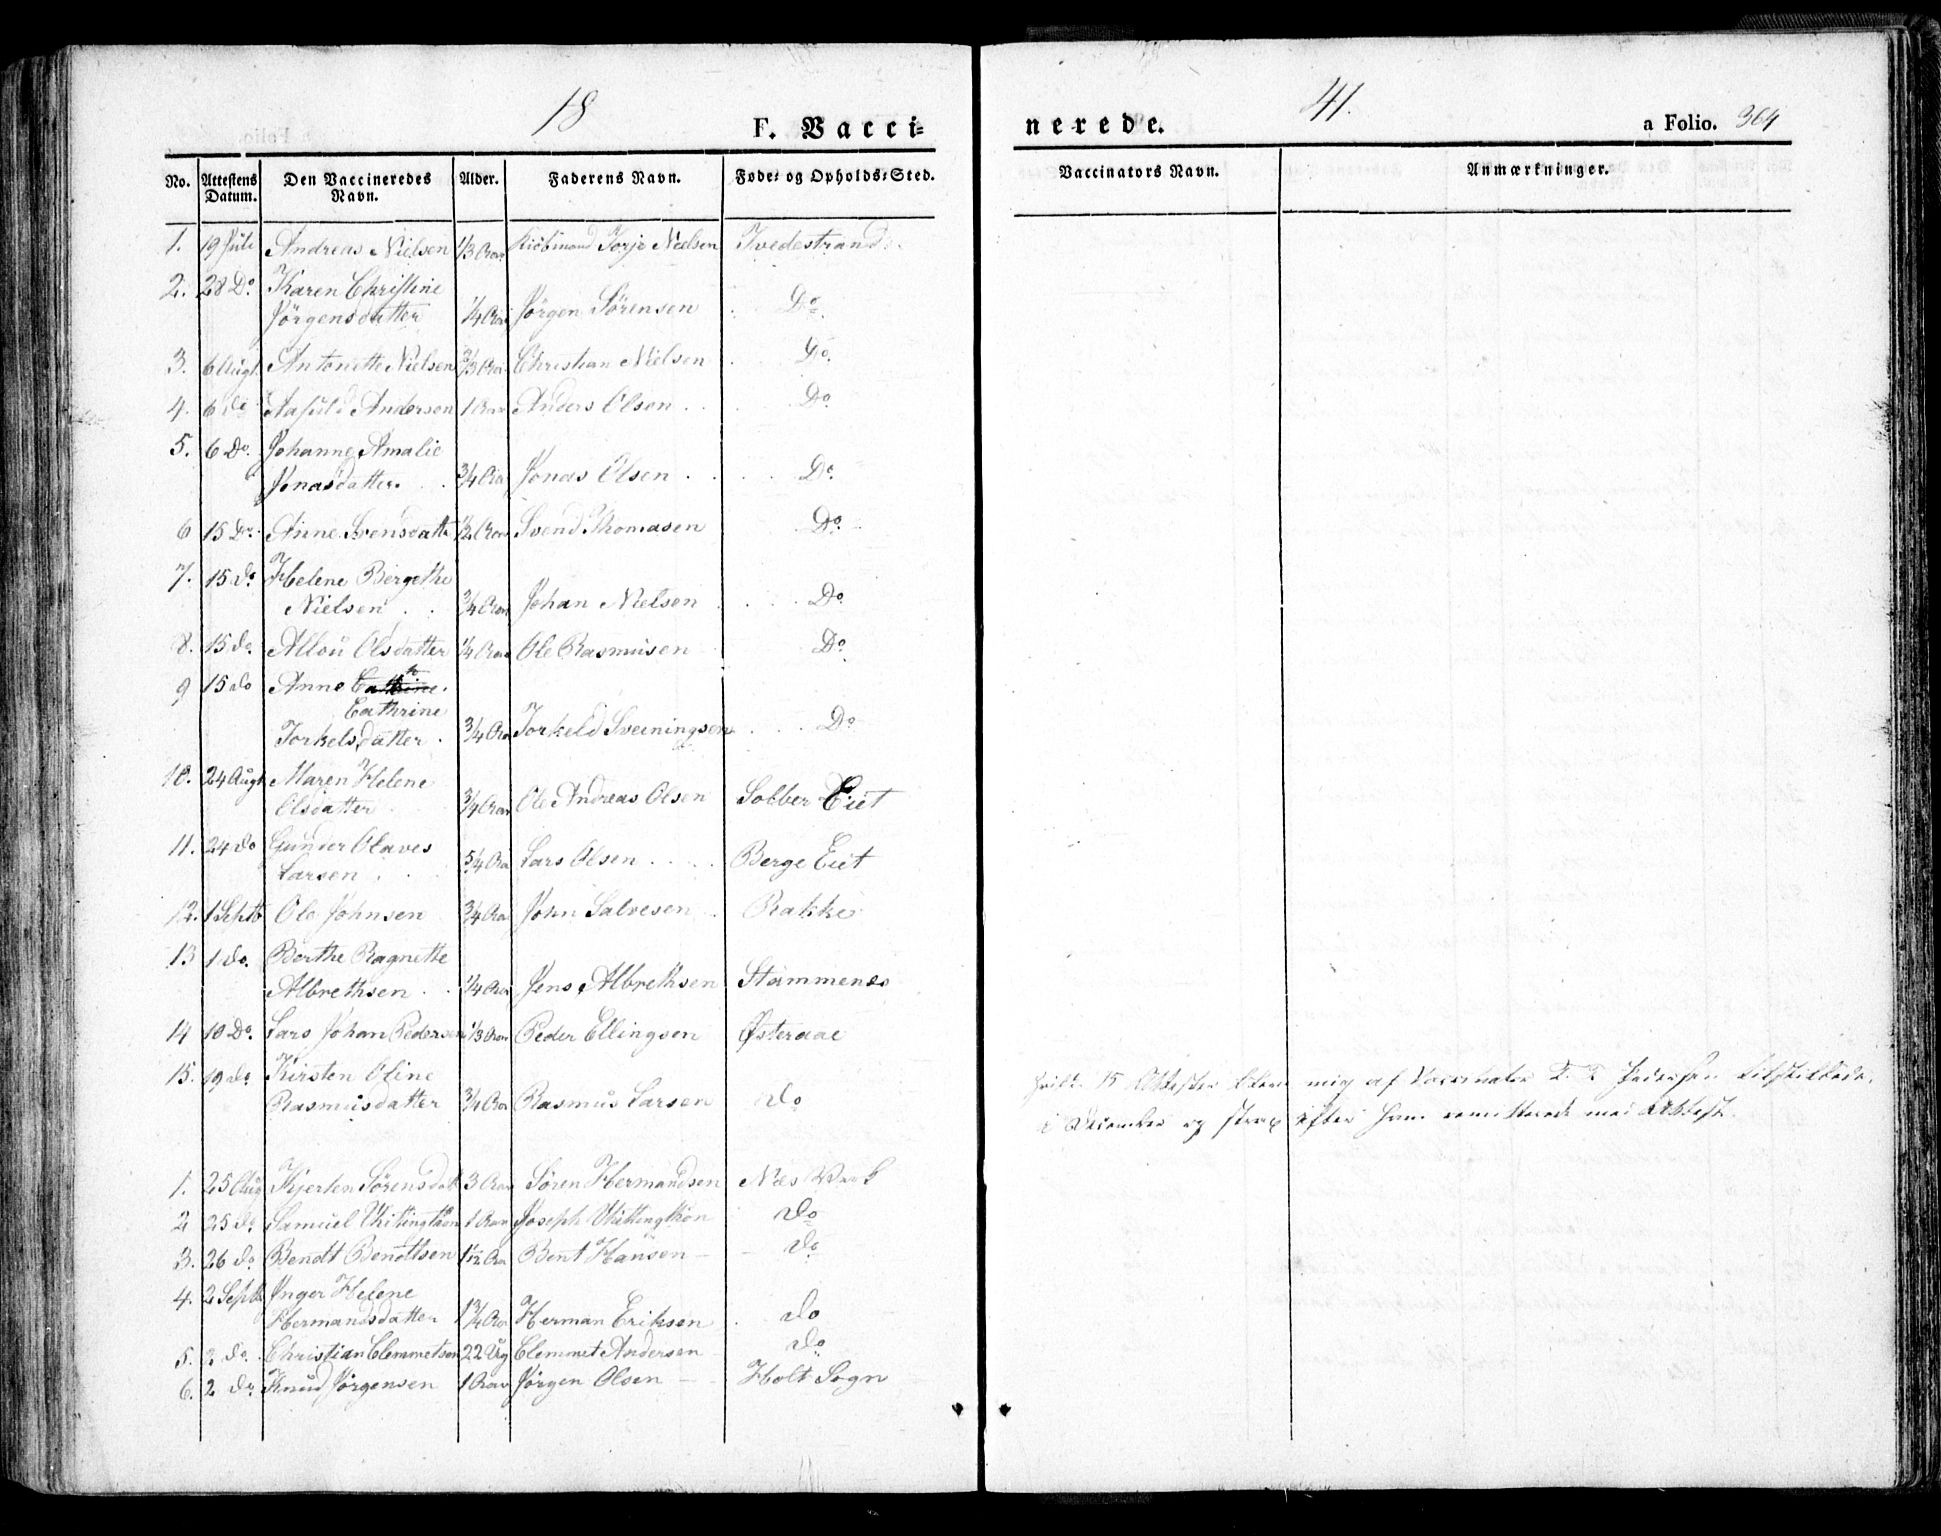 18 41.
F. Vaccinerede. a Folio. 364
No. Attestens Datum. Den Vaccineredes Navn. Alder. Faderens Navn. Føde- og Opholds-Sted. Vaccinators Navn. Anmærkninger.
1. 19 Juli Andreas Nielsen 1/3 Aar Kiöbmand Torje Nielsen Tvedestrand
2. 28 Do. Karen Christine
Jörgensdatter 1/4 Aar Jörgen Sörensen Do.
3. 6 Augt. Antonette Nielsen 2/3 Aar Christian Nielsen Do.
4. 6 do Aasuld Andersen 1 Aar Anders Olsen Do.
5. 6 Do. Johanne Amalie
Jonasdatter. 3/4 Aar Jonas Olsen Do.
6 15 Do. Anne Svensdatt. 1/2 Aar Svend Thomasen Do.
7. 15 do Helene Bergethe
Nielsen 3/4 Aar Johan Nielsen Do.
8. 15 do Allou Olsdatter 1/4 Aar Ole Rasmusen Do.
9 15 do Anne
Cathrine
Torkelsdatter 3/4 Aar Torkeld Sveiningsen Do.
10. 24 Augt. Maren Helene
Olsdatter 3/4 Aar Ole Andreas Olsen Solber Eiet
11. 24 do Gunder Olaves
Larsen 5/4 Aar Lars Olsen Berge Eiet
12. 1 Septb Ole Johnsen 3/4 Aar John Salvesen Rakke
13 1 do. Berthe Ragnette
Albrethsen 1/4 Aar Jens Albrethsen Stammenes
14 10 Do. Lars Johan Pedersen 1/3 Aar Peder Ellingsen Østeraae
15. 19 do. Kirsten Oline
Rasmusdatter 3/4 Aar Rasmus Larsen do
15 Attester mig af Vaccinator Pedersen tilstillede
i December og strax efter ham remitterede med Attest.
1. 25 Aug Kjersten Sörensdat 3 Aar Sören Hermandsen Næs Værk
2 25 do Samuel Whitingthon 1 Aar Joseph Whittingthon do
3. 26 do Bendt Bendtsen 1 1/12 Aar Bent Hansen do
4. 2 Septb Inger Helene
Hermandsdatter 1 3/4 Aar Herman Eriksen do
5. 2 do. Christian Clemmetsen 22 Ug Clemmet Andersen do
6. 2 do Knud Jørgensen 1 Aar Jørgen Olsen Holt Sogn